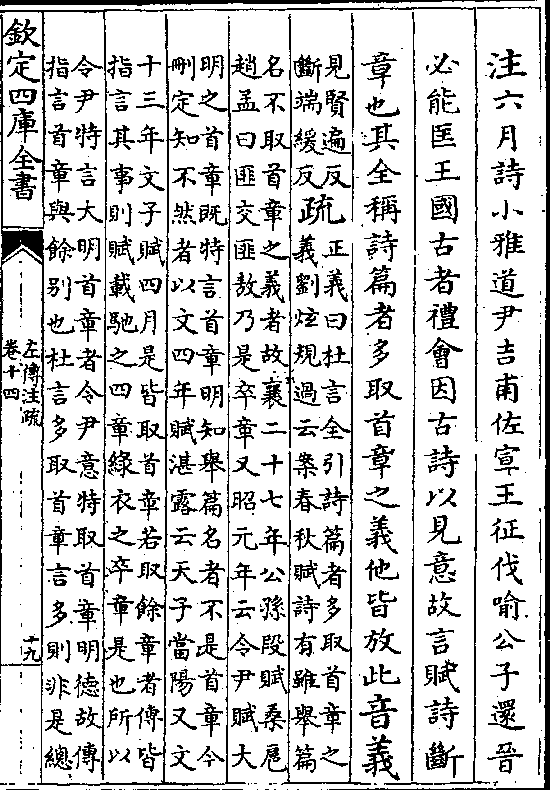 注六月詩小雅道尹吉甫佐宣王征伐喻公子還晉
必能匡王國古者禮會因古詩以見意故言賦詩斷
章也其全稱詩篇者多取首章之義他皆放此音義
見賢遍反
斷端緩反
疏
正義曰杜言全引詩篇者多取首章之
義劉炫規過云案春秋賦詩有雖舉篇
名不取首章之義者故襄二十七年公孫段賦桑扈
趙孟曰匪交匪敖乃是卒章又昭元年云令尹賦大
明之首章既特言首章明知舉篇名者不是首章今
刪定知不然者以文四年賦湛露云天子當陽又文
十三年文子賦四月是皆取首章若取餘章者傳皆
指言其事則賦載馳之四章綠衣之卒章是也所以
令尹特言大明首章者令尹意特取首章明德故傳
指言首章與餘別也杜言多取首章言多則非是總
欽定四庫全書
左傳注疏
卷十四
十九